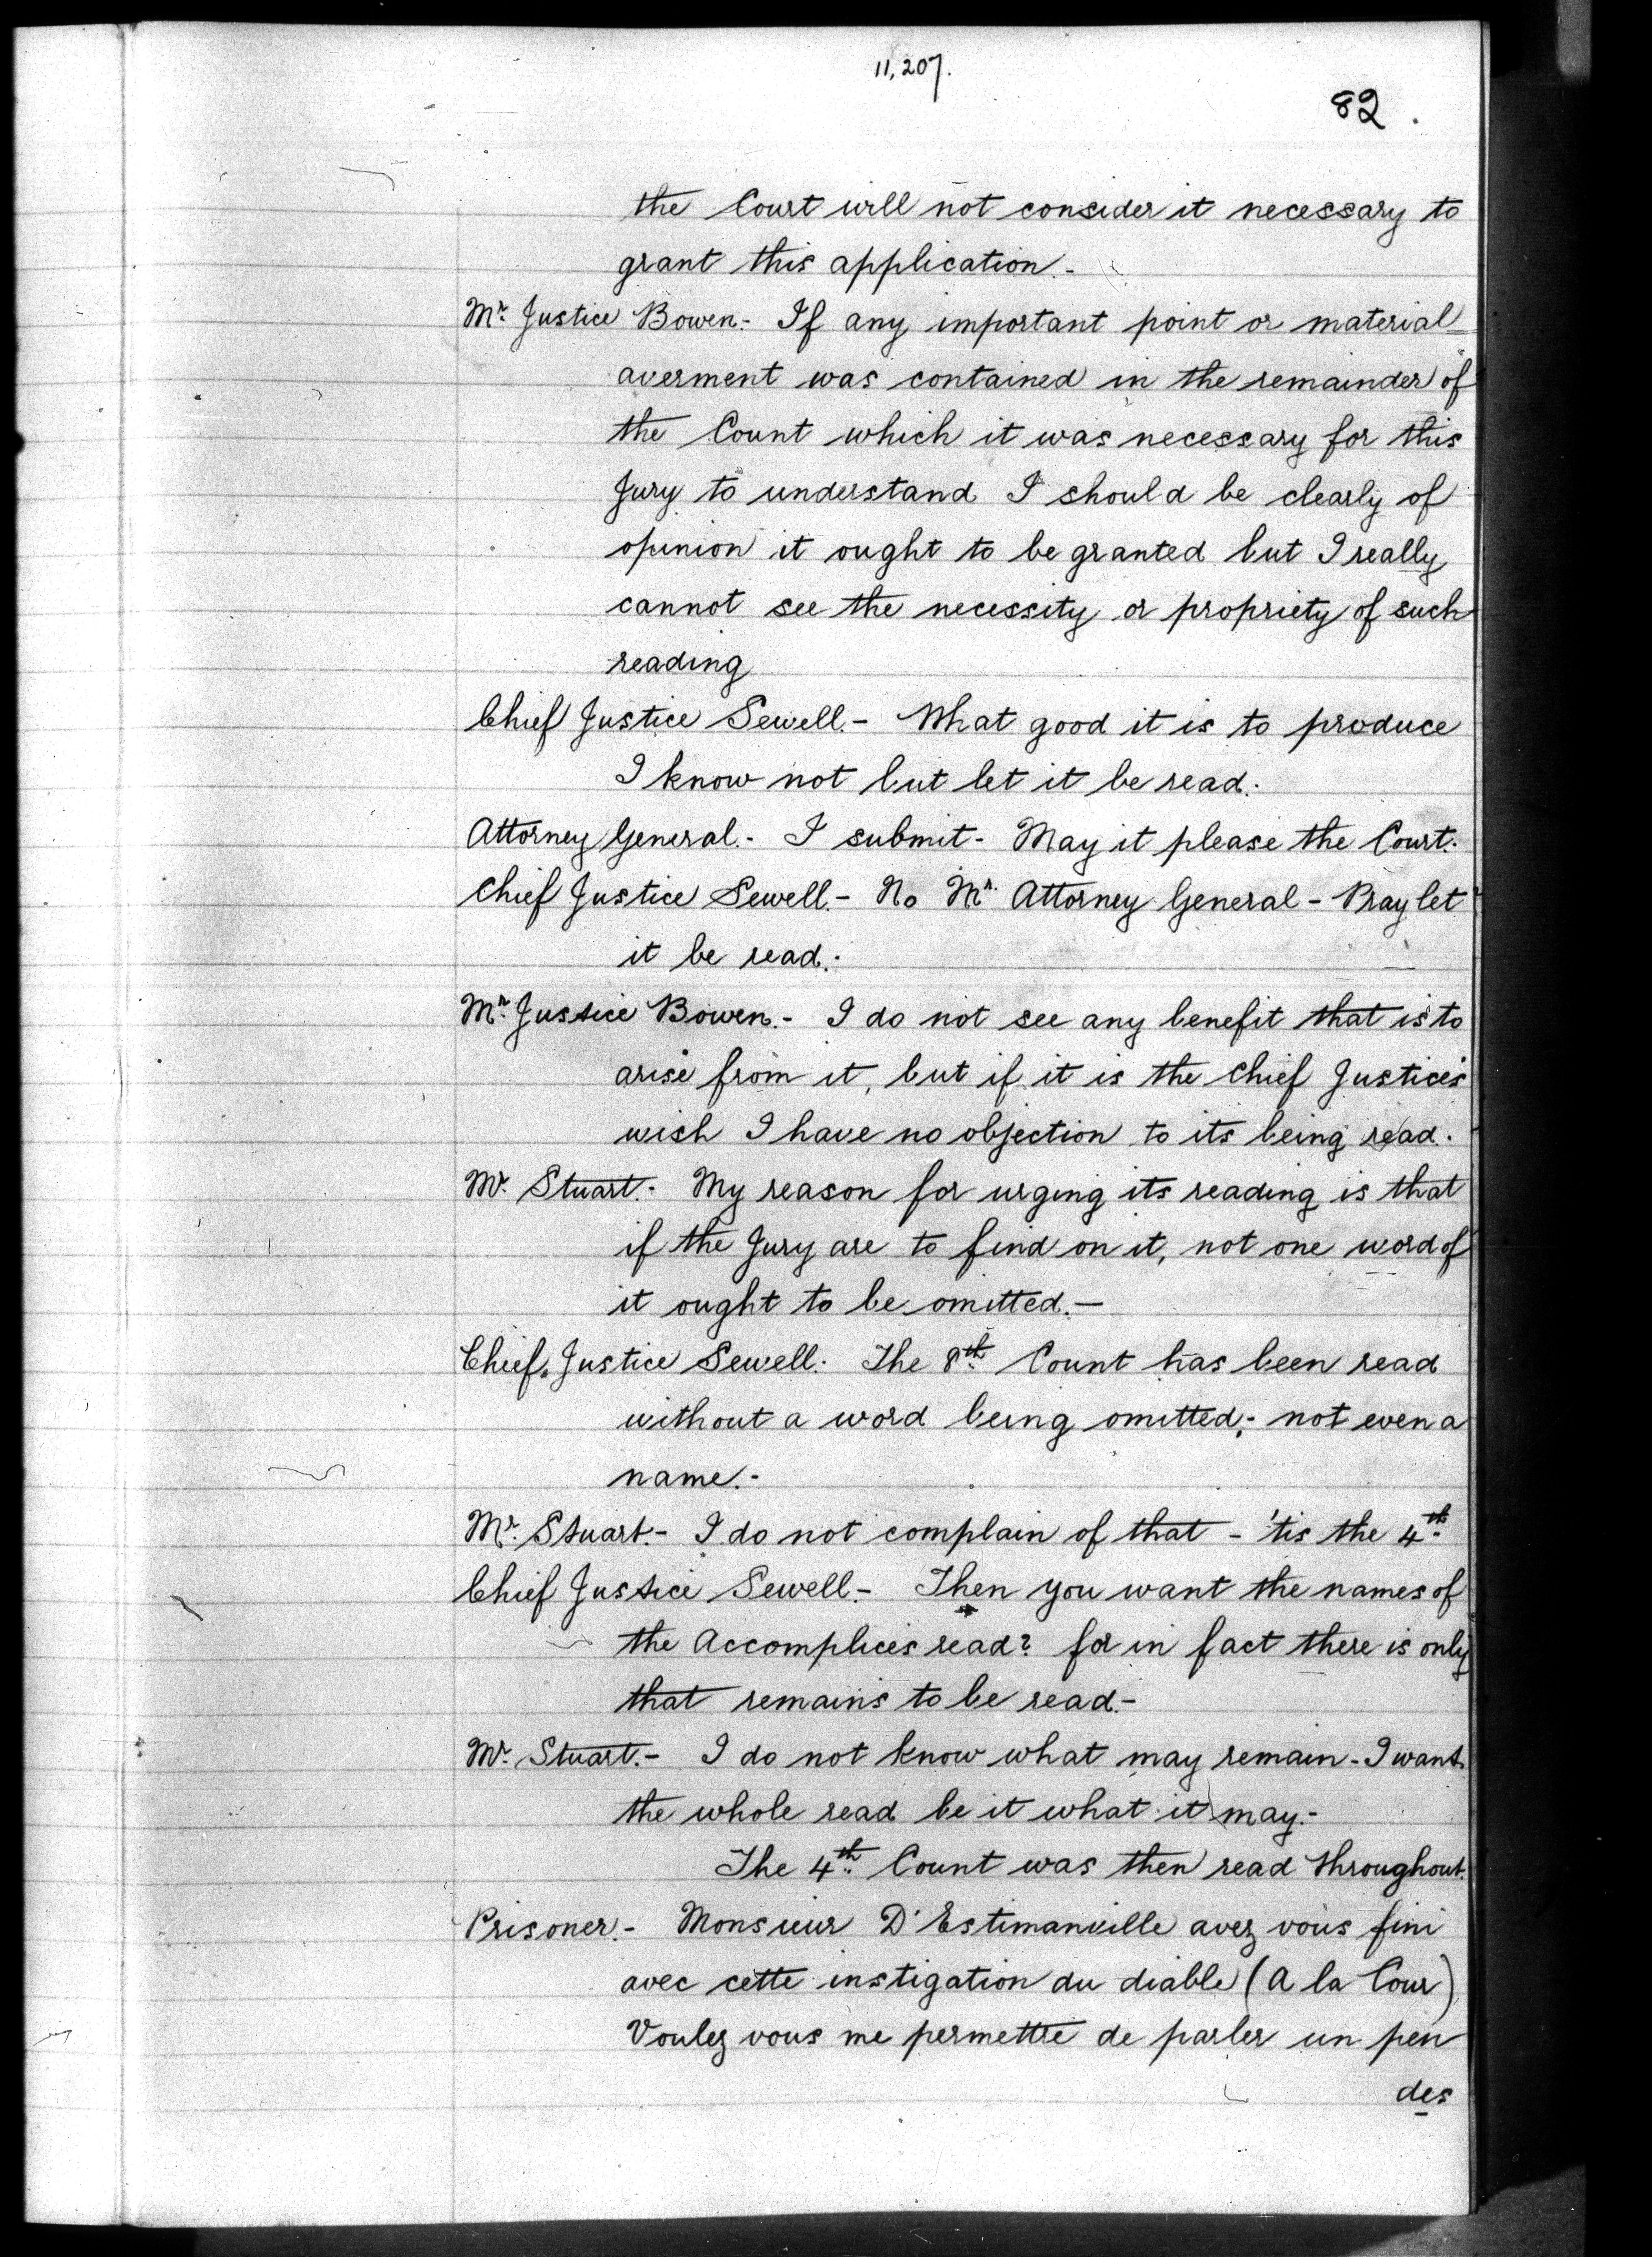 11,207.
82.
the Court will not consider it necessary to
grant this application.-
Mr. Justice Bowen.- If any important point or material
averment was contained in the remainder of
the Count which it was necessary for this
Jury to understand I should be clearly of
opinion it ought to be granted but I really
cannot see the necessity or propriety of such
reading
Chief Justice Sewell.- What good it is to produce
I know not but let it be read.-
Attorney General.- I submit- May it please the Court.-
Chief Justice Sewell.- No Mr. Attorney General - Pray let
it be read.-
Mr. Justice Bowen.- I do not see any benefit that is to
arise from it, but if it is the Chief Justices
wish I have no objection to its being read.
Mr. Stuart.- My reason for urging its reading is that
if the Jury are to find on it, not one word of
it ought to be omitted.-
Chief Justice Sewell. The 8th. Count has been read
without a word being omitted;- not even a
name.-
Mr. Stuart.- I do not complain of that - 'tis the 4th.
Chief Justice Sewell.- Then you want the names of
the Accomplices read? for in fact there is only
that remains to be read.-
Mr. Stuart.- I do not know what may remain - I want
the whole read be it what it may.-
The 4th. Count was then read throughout.
Prisoner.- Monsieur D'Estimanville avez vous fini
avec cette instigation du diable (A la Cour)
Voulez vous me permettre de parler un peu
des